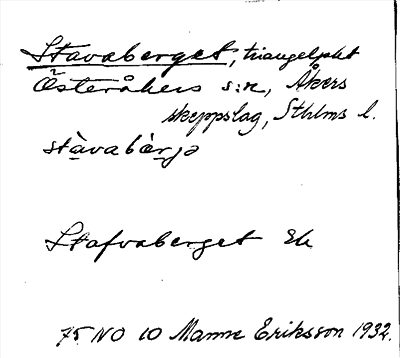 Stavaberget, triangelpkt
Österåkers s:n, Åkers
skeppslag, Sthlms l.
stàvabæ̀rjə
Stafvaberget Ek
75 NO 10 Manne Eriksson 1932.